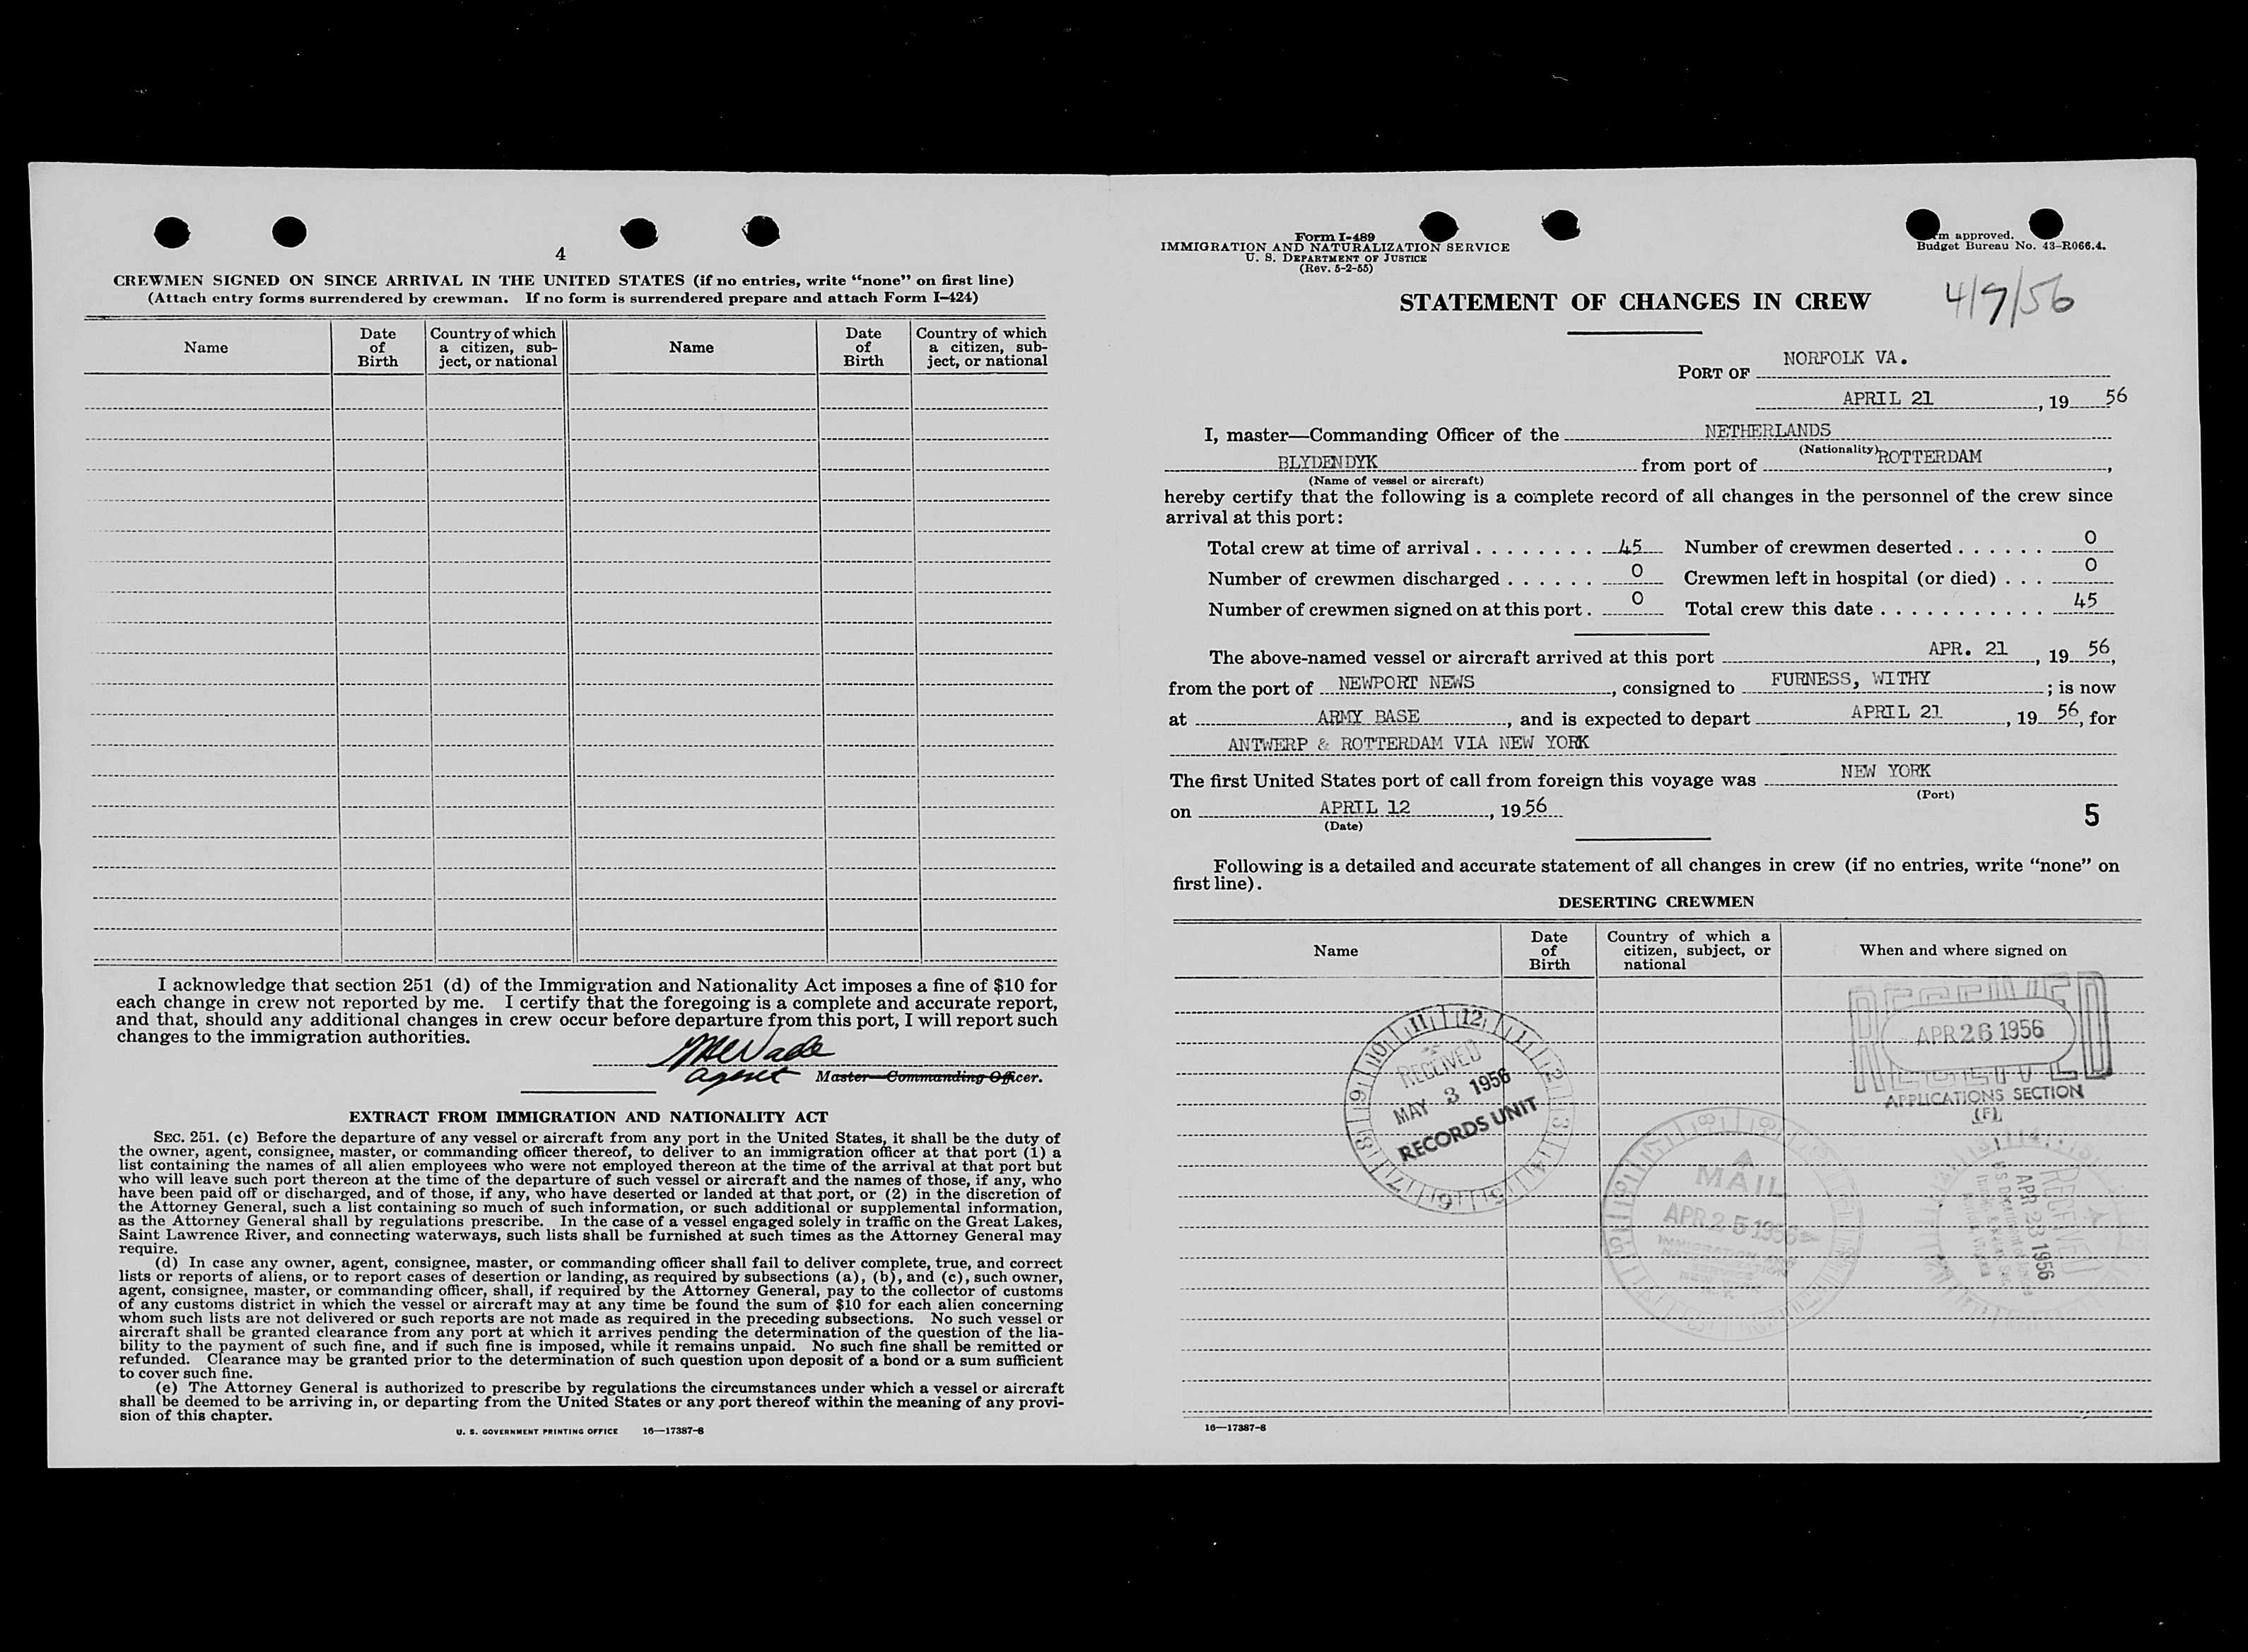 4
CREWMEN SIGNED ON SINCE ARRIVAL IN THE UNITED STATES (if no entries, write “none” on first line)
(Attach entry forms surrendered by crewman. If no form is surrendered prepare and attach Form I–424)
Name
Date of Birth
Country of which a citizen, sub-ject, or national
Name
Date of Birth
Country of which a citizen, sub-ject, or national
I acknowledge that section 251 (d) of the Immigration and Nationality Act imposes a fine of $10 for
each change in crew not reported by me. I certify that the foregoing is a complete and accurate report,
and that, should any additional changes in crew occur before departure from this port, I will report such
changes to the immigration authorities.
agent Master—Commanding Officer.
EXTRACT FROM IMMIGRATION AND NATIONALITY ACT
SEC. 251. (c) Before the departure of any vessel or aircraft from any port in the United States, it shall be the duty of
the owner, agent, consignee, master, or commanding officer thereof, to deliver to an immigration officer at that port (1) a
list containing the names of all alien employees who were not employed thereon at the time of the arrival at that port but
who will leave such port thereon at the time of the departure of such vessel or aircraft and the names of those, if any, who
have been paid off or discharged, and of those, if any, who have deserted or landed at that port, or (2) in the discretion of
the Attorney General, such a list containing so much of such information, or such additional or supplemental information,
as the Attorney General shall by regulations prescribe. In the case of a vessel engaged solely in traffic on the Great Lakes,
Saint Lawrence River, and connecting waterways, such lists shall be furnished at such times as the Attorney General may
require.
(d) In case any owner, agent, consignee, master, or commanding officer shall fail to deliver complete, true, and correct
lists or reports of aliens, or to report cases of desertion or landing, as required by subsections (a), (b), and (c), such owner,
agent, consignee, master, or commanding officer, shall, if required by the Attorney General, pay to the collector of customs
of any customs district in which the vessel or aircraft may at any time be found the sum of $10 for each alien concerning
whom such lists are not delivered or such reports are not made as required in the preceding subsections. No such vessel or
aircraft shall be granted clearance from any port at which it arrives pending the determination of the question of the lia-
bility to the payment of such fine, and if such fine is imposed, while it remains unpaid. No such fine shall be remitted or
refunded. Clearance may be granted prior to the determination of such question upon deposit of a bond or a sum sufficient
to cover such fine.
(e) The Attorney General is authorized to prescribe by regulations the circumstances under which a vessel or aircraft
shall be deemed to be arriving in, or departing from the United States or any port thereof within the meaning of any provi-
sion of this chapter.
U. S. GOVERNMENT PRINTING OFFICE 16—17387-8
Form I–489
IMMIGRATION AND NATURALIZATION SERVICE
U. S. DEPARTMENT OF JUSTICE
(Rev. 5-2-55)
approved.
Budget Bureau No. 43–R066.4.
STATEMENT OF CHANGES IN CREW
4/9/56
PORT OF NORFOLK VA.
APRIL 21, 19 56
I, master—Commanding Officer of the NETHERLANDS
(Nationality)
BLYDENDYK from port of ROTTERDAM,
(Name of vessel or aircraft)
hereby certify that the following is a complete record of all changes in the personnel of the crew since
arrival at this port:
Total crew at time of arrival 45 Number of crewmen deserted 0
Number of crewmen discharged 0 Crewmen left in hospital (or died) 0
Number of crewmen signed on at this port 0 Total crew this date 45
The above-named vessel or aircraft arrived at this port APR. 21, 19 56,
from the port of NEWPORT NEWS, consigned to FURNESS, WITHY; is now
at ARMY BASE, and is expected to depart APRIL 21, 19 56, for
ANTWERP & ROTTERDAM VIA NEW YORK
The first United States port of call from foreign this voyage was NEW YORK
(Port)
on APRIL 12, 19 56
(Date)
5
Following is a detailed and accurate statement of all changes in crew (if no entries, write “none” on
first line).
DESERTING CREWMEN
Name
Date of Birth
Country of which a citizen, subject, or national
When and where signed on
RECEIVED
APR 26 1956
APPLICATIONS SECTION
(F)
11 12 1 2 3 4 5 6 7 8 9 10
RECEIVED
MAY 3 1956
RECORDS UNIT
MAIL
APR 25 1956
RECEIVED
APR 23 1956
16—17387-8